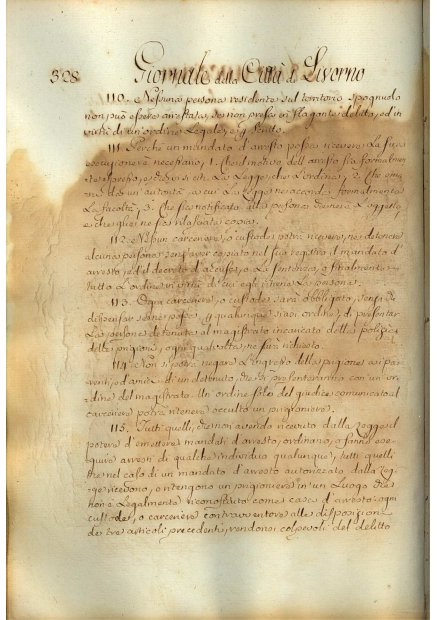 328 Giornale della Città di Livorno
110. Nessuna persona residente sul territorio spagnuolo
non può essere arrestata, se non presa in flagante delitto, od in
virtù di un'ordine Legale, e
111. Perchè un mandato d'arresto possa ricevere La sua
esecuzione è necessario, 1. che il motivo dell'arresto sia formalmen
espresso, e La Legge, che L'ordina, 2. che ema
da un'autorità, a cui La Legge ne accorda formalmente
La facoltà, 3. che sia notificato alla persona
e che gliene sia rilasciata copia.
112. Nessun carceriere, o custode potrà ricevere, ne detenere
alcuna persona senz'aver copiato nel suo registro il mandato d'
arresto, il decreto d'accusa, o La sentenza, o finalmente
L'ordine in virtù di cui egli ritiene La persona.
113. Ogni carceriere, o custode sarà obbligato, senza
dispensar per qualunque siasi ordine, di presentar
La persona detenuta al magistrato incaricato della polizia
delle prigioni, ogni qualvolta ne sarà richiesto.
114. Non si potrà negare L'ingresso della prigione ai pa
renti, d'amici di un detenuto, che si presenteranno con un or
dine del magistrato. Un ordine solo del giudice comunicato al
carceriere potrà ritenere occulto un prigioniero.
115. Tutti quelli, che non avendo ricevuto dalla Legge il
potere d'emettere mandati d'arresto, ordinano, o fanno ese
guire arresti di qualche individuo qualunque, tutti quelli
che nel caso di un mandato d'arresto autorizzato dalla Leg
ge ricevono, o ritengono un prigioniero in un Luogo che
non è Legalmente riconosciuto come casa d'arresto, ogni
custode, o carceriere contravventore alle disposizioni
de tre articoli precedenti, rendonsi colpevoli del delitto